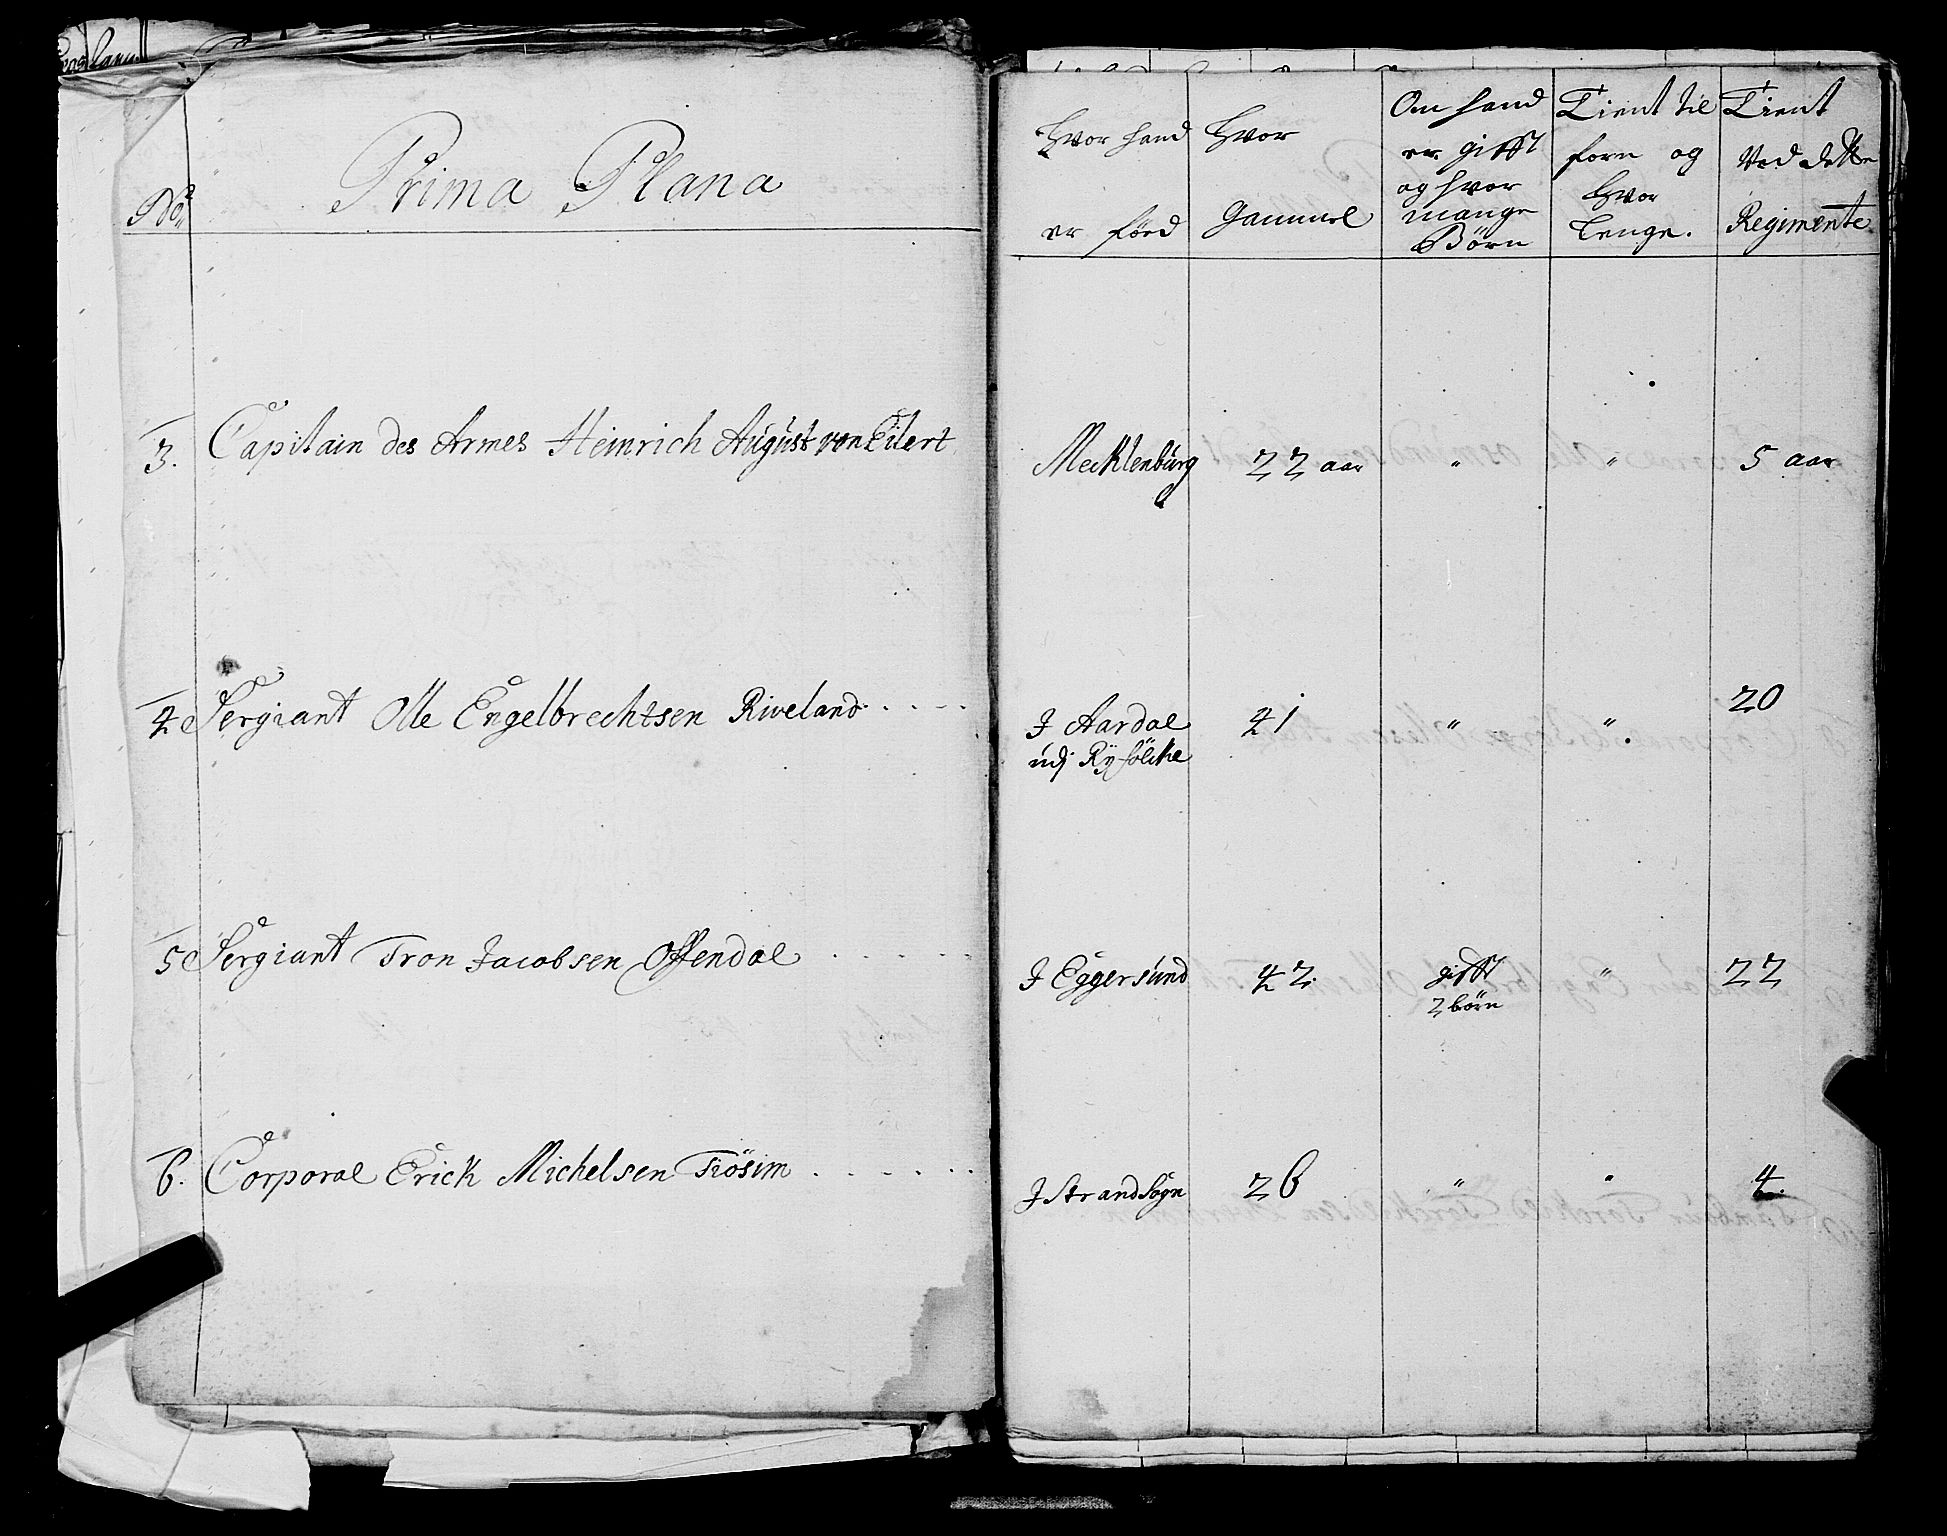 No
Prima Plana
3. Capitain des Armes Heinrich August von Eilert
4 Sergiant Olle Engelbrechtsen Riveland
5 Sergiant Tron Jacobsen Offendal
6. Corporal Erick Michelsen Tiösim
Hvor hand
er föed
Hvor
Gammel
Om hand
er gifft
og hvor
mange
Börn
Tient til
forn og
hvor
Lenge.
Tient
Ved dette
Regimente
Mecklenburg 22 aar " " 5 aar
J Aardal 41 " " 20
udj Ryfölcke
J Eggersund 42. gifft " 22
2 börn
J Strand Sogn 26 " " 4.